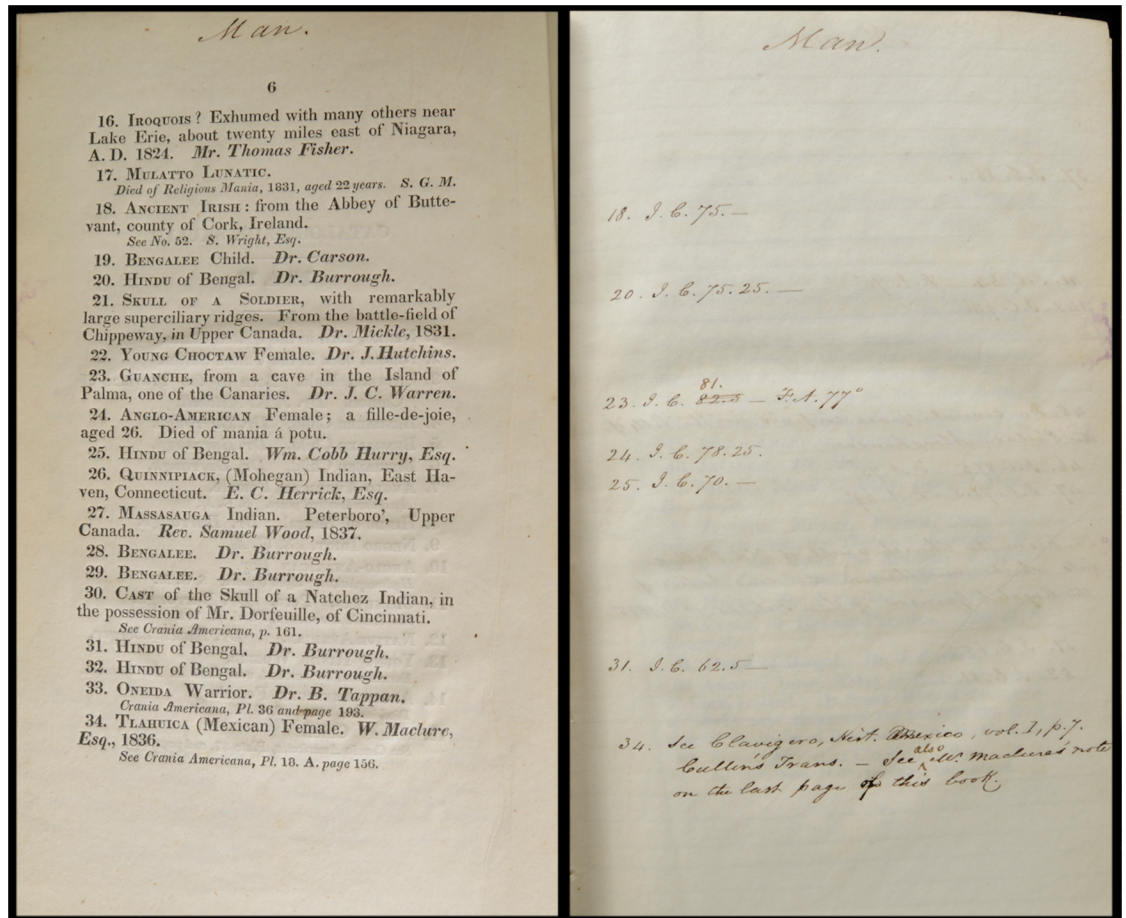 Man.
6
16. IROQUOIS? Exhumed with many others near
Lake Erie, about twenty miles east of Niagara,
A. D. 1824. Mr. Thomas Fisher.
17. MULATTO LUNATIC.
Died of Religious Mania, 1831, aged 22 years. S. G. M.
18. ANCIENT IRISH: from the Abbey of Butte-
vant, county of Cork, Ireland.
See No. 52. S. Wright, Esq.
19. BENGALEE Child. Dr. Carson.
20. HINDU of Bengal. Dr. Burrough.
21. SKULL OF A SOLDIER, with remarkably
large superciliary ridges. From the battle-field of
Chippeway, in Upper Canada. Dr. Mickle, 1831.
22. YOUNG CHOCTAW Female. Dr. J. Hutchins.
23. GUANCHE, from a cave in the Island of
Palma, one of the Canaries. Dr. J. C. Warren.
24. ANGLO-AMERICAN Female; a fille-de-joie,
aged 26. Died of mania á potu.
25. HINDU of Bengal. Wm. Cobb Hurry, Esq.
26. QUINNIPIACK, (Mohegan) Indian, East Ha-
ven, Connecticut. E. C. Herrick, Esq.
27. MASSASAUGA Indian. Peterboro', Upper
Canada. Rev. Samuel Wood, 1837.
28. BENGALEE. Dr. Burrough.
29. BENGALEE. Dr. Burrough.
30. CAST of the Skull of a Natchez Indian, in
the possession of Mr. Dorfeuille, of Cincinnati.
See Crania Americana, p. 161.
31. HINDU of Bengal. Dr. Burrough.
32. HINDU of Bengal. Dr. Burrough.
33. ONEIDA Warrior. Dr. B. Tappan.
Crania Americana, Pl. 36 and page 193.
34. TLAHUICA (Mexican) Female. W. Maclure,
Esq., 1836.
See Crania Americana, Pl. 18. A. page 156.
Man.
18. I. C. 75. —
20. I. C. 75.25. —
81.
23. I. C. 82.5 — F.A. 77°
24. I. C. 78.25.
25. I. C. 70. —
31. I. C. 62.5 —
34. See Clavigero, Hist. Mexico, vol. I, p. 7.
also
Cullen's Trans. — See Mr. Maclure's note
on the last page of this book.